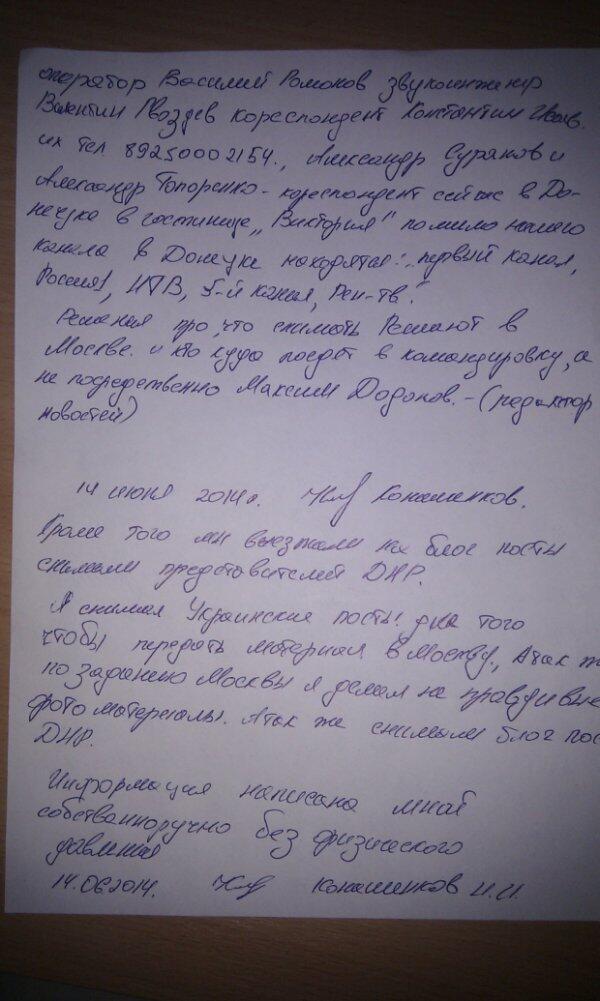 оператор Василий Ромонов звукоинженир
Валентин Гвоздев кореспондент Константин
их тел. 89250002154., Александр Сураков и
Александр Топоренко - кореспондент сейчас в До-
нецке в гостинице „Виктория" помимо нашего
канала в Донецке находятся: „первый канал,
Россия1, НТВ, 5-й канал, Рен-тв."
Решения про, что снимать Решают в
Москве. и кто куда поедет в командировку, а
не посредственно Максим Додонов. - (редактор
новостей)
14 июня 2014г. Конашенков.
Кроме того мы выезжали на блог посты
снимали представителей ДНР.
Я снимал Украинские посты: для того
чтобы передать материал в Москву, Атак ж
по заданию Москвы я делал не правдивые
фото материалы. Атак же снимали блог пос
ДНР.
Информация написана мной
собственноручно без физического
давления
14.062014. Конашенков И.И.